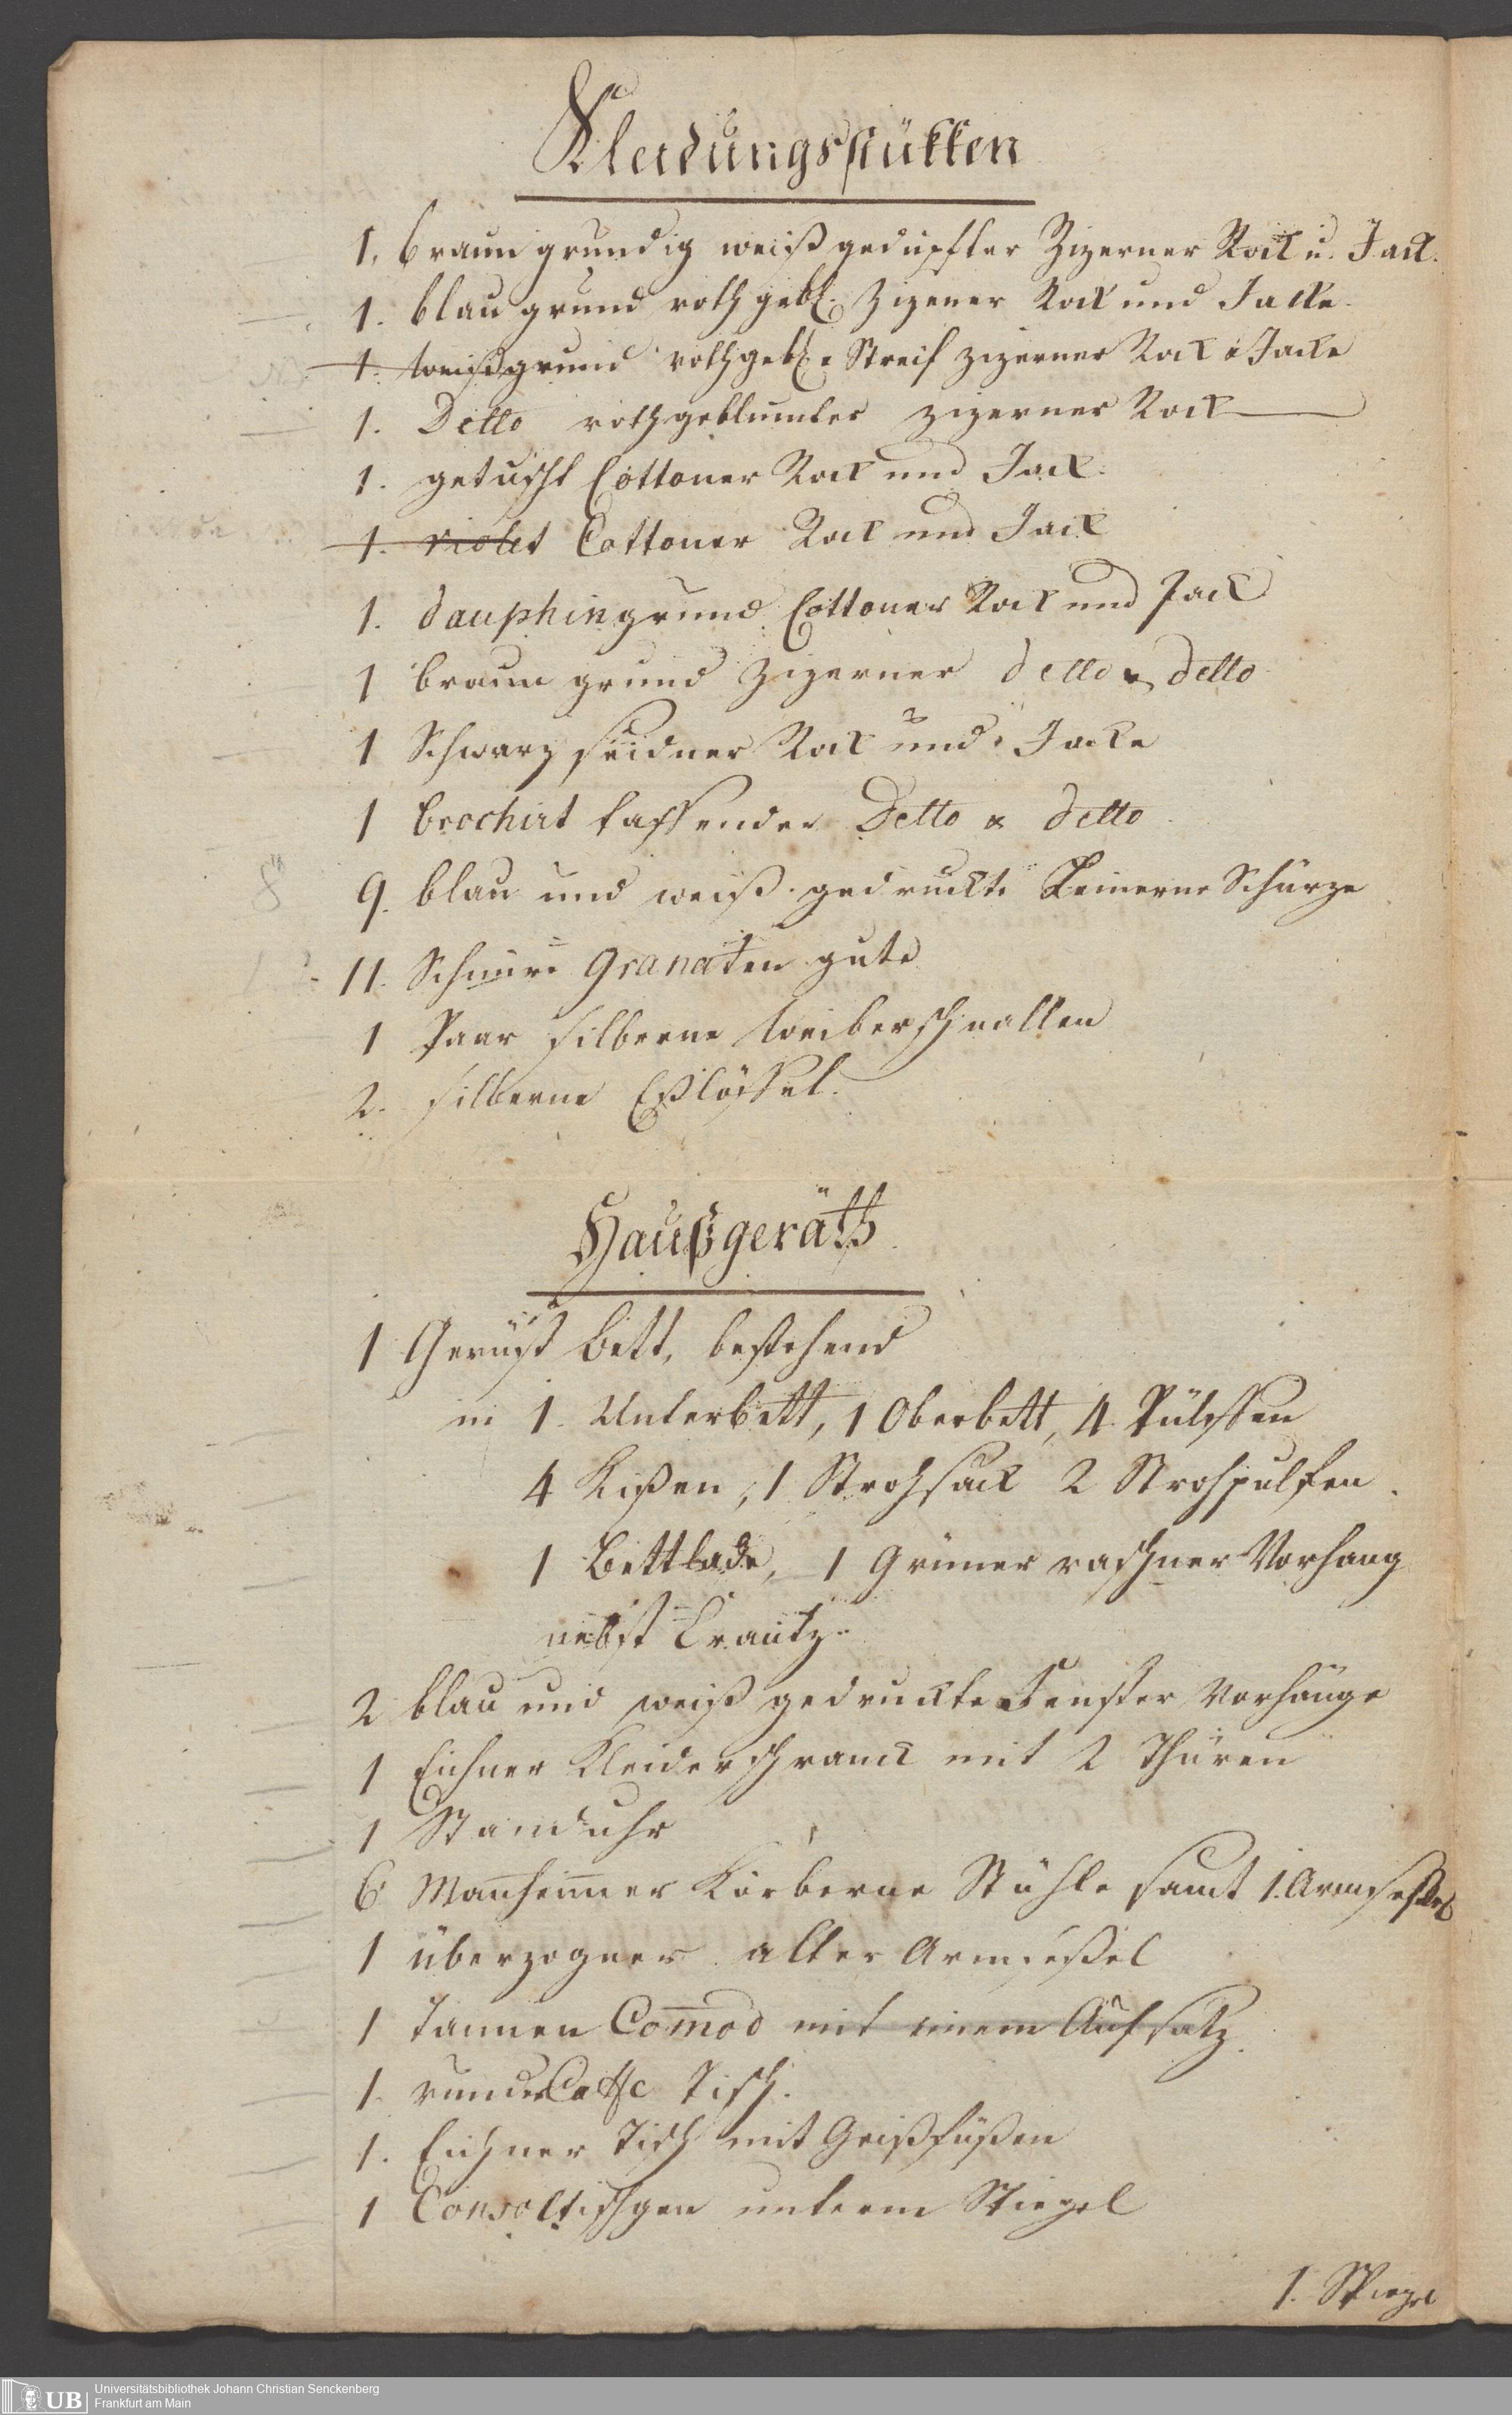 Kleidungsstükken
1. braun grundig weiß gedupfter Zizerner Rock u. Jack.
1. blau grund roth gebl. Zizener Rock und Jacke.
1. weißgrund rothgebl. Streif zizerner Rock & Jacke
1. Detto rothgeblumter zizerner Rock
1. getuscht Cottoner Rock und Jack.
1. violet Cottoner Rock und Jack
1. dauphingrund Cottoner Rock und Jack
1 braun grund Zizerner detto & detto
1 Schwarz seidner Rock und Jacke
1 brochirt taffender Detto & detto
8
9. blau und weiß gedruckte Leinerne Schürze
11. Schnüre Granaten gute
1 Paar silberne Weiberschnallen
2. silberne Eßlöffel.
Haußgeräth
1 Gerüst Bett, bestehend
in 1. Unterbett, 1 Oberbett, 4 Pülffen
4 Kißen, 1 Strohsack 2 Strohpulfen.
1 Bettlade, 1 Grüner raschner Vorhang
nebst Crantz.
2 blau und weiß gedruckte Fenster Vorhänge
1 Eichner Kleiderschranck mit 2 Thüren
1 Standuhr
6 Manheimer Körberne Stühle samt 1. Armsessel
1 überzogner alter Armseßel
1 Tannen Comod mit einem Aufsatz.
1. runder Caffe Tisch.
1. Eichner Tisch mit Geißfüßen
1 Consoltischgen unterm Spiegel
1. Spiegel
UB
Universitätsbibliothek Johann Christian Senckenberg
Frankfurt am Main